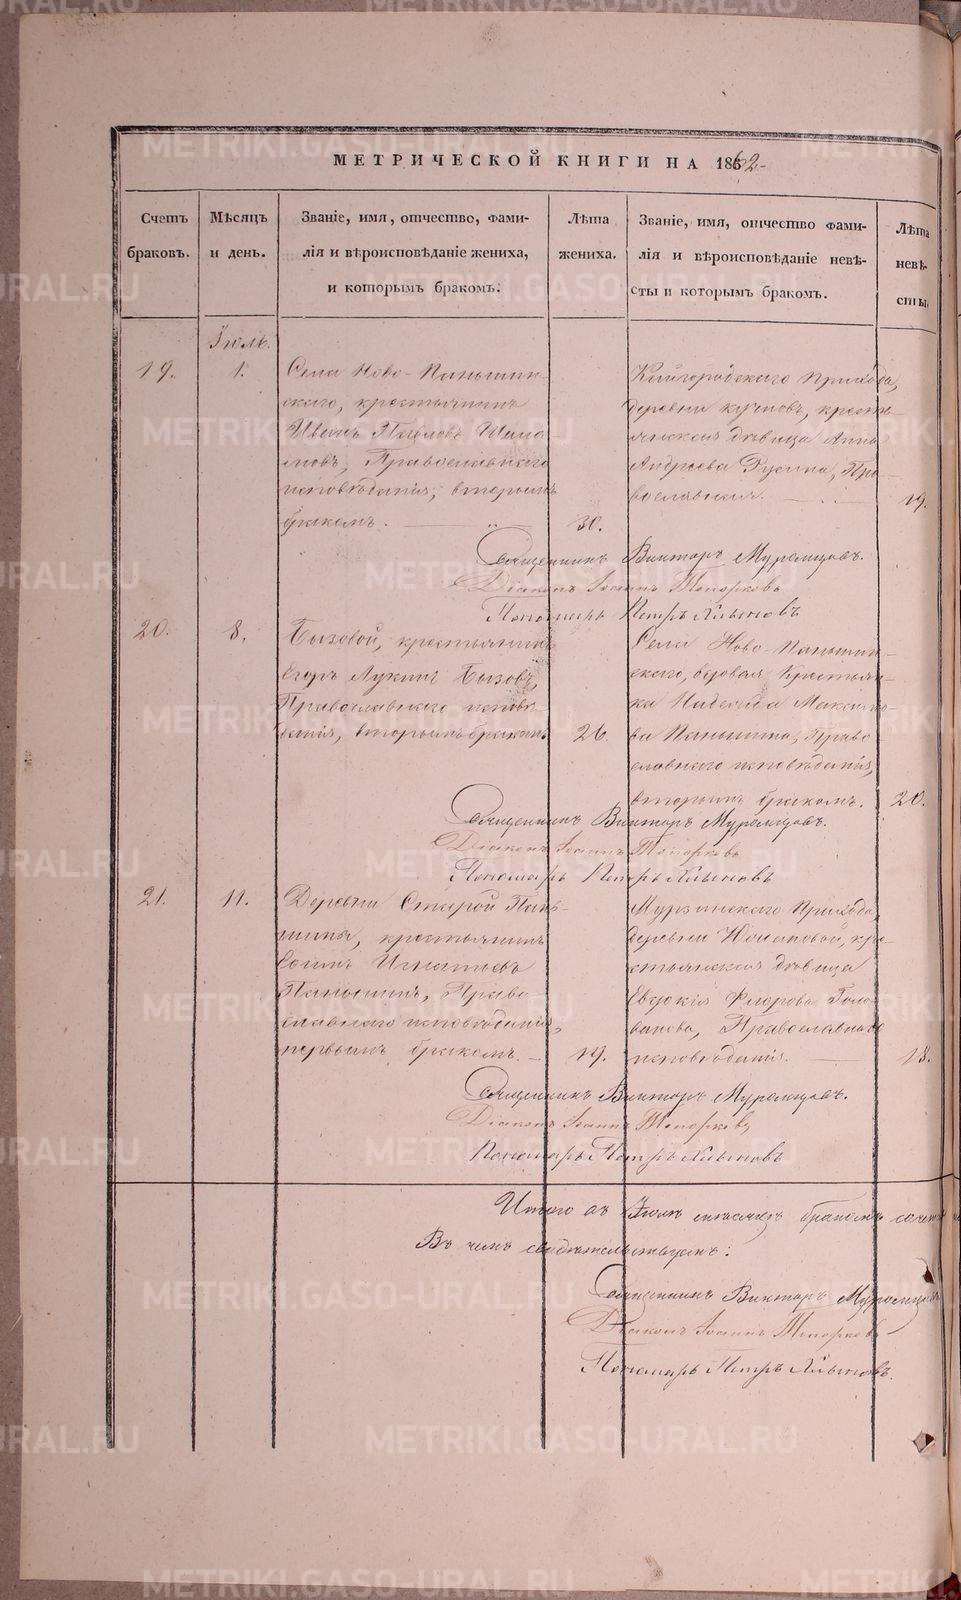 МЕТРИЧЕСКОЙ КНИГИ НА 1862
Счетъ браковъ.
Мѣсяцъ и день.
Званіе, имя, отчество, фами-
лія и вѣроисповѣданіе жениха,
и которымъ бракомъ.
Лѣта жениха.
Званіе, имя, отчество фами-
лія и вѣроисповѣданіе невѣ-
сты и которымъ бракомъ.
Лѣта невѣ-
сты
Іюль.
19.
1.
Села Ново-Паньшин-
скаго, крестьянинъ
Иванъ Павловъ
Православнаго
исповѣданія, вторымъ
бракомъ.
30.
прихода,
деревни кресть-
янская дѣвица Анна
Андреева Русина, Пра-
вославная.
19.
Священникъ Викторъ Муромцовъ.
Діаконъ Іоаннъ Топорковъ
Пономарь Петръ Хлыновъ
20.
8.
Бызовой, крестьянинъ
Егоръ Лукинъ Бызовъ,
Православнаго исповѣ-
данія, вторымъ бракомъ
26.
Села Ново-Паньшин-
скаго, вдовая Крестьян-
ка Надежда Максимо-
ва Паньшина, Право-
славнаго исповѣданія,
вторымъ бракомъ.
20.
Священникъ Викторъ Муромцовъ.
Діаконъ Іоаннъ Топорковъ
Пономарь Петръ Хлыновъ
21.
11.
Деревни Старой Пань-
шиной, крестьянинъ
Игнатьевъ
Паньшинъ, Право-
славнаго исповѣданія,
первымъ бракомъ.
19.
Мурзинскаго прихода,
деревни кре-
стьянская дѣвица
Евдокія Флорова Голо-
ванова, Православнаго
исповѣданія.
18.
Священникъ Викторъ Муромцовъ.
Діаконъ Іоаннъ Топорковъ
Пономарь Петръ Хлыновъ
Итого въ Іюлѣ мѣсяцѣ бракомъ
Въ чемъ свидѣтельствуемъ:
Священникъ Викторъ Муромцовъ
Діаконъ Іоаннъ Топорковъ
Пономарь Петръ Хлыновъ.
METRIKI.GASO-URAL.RU